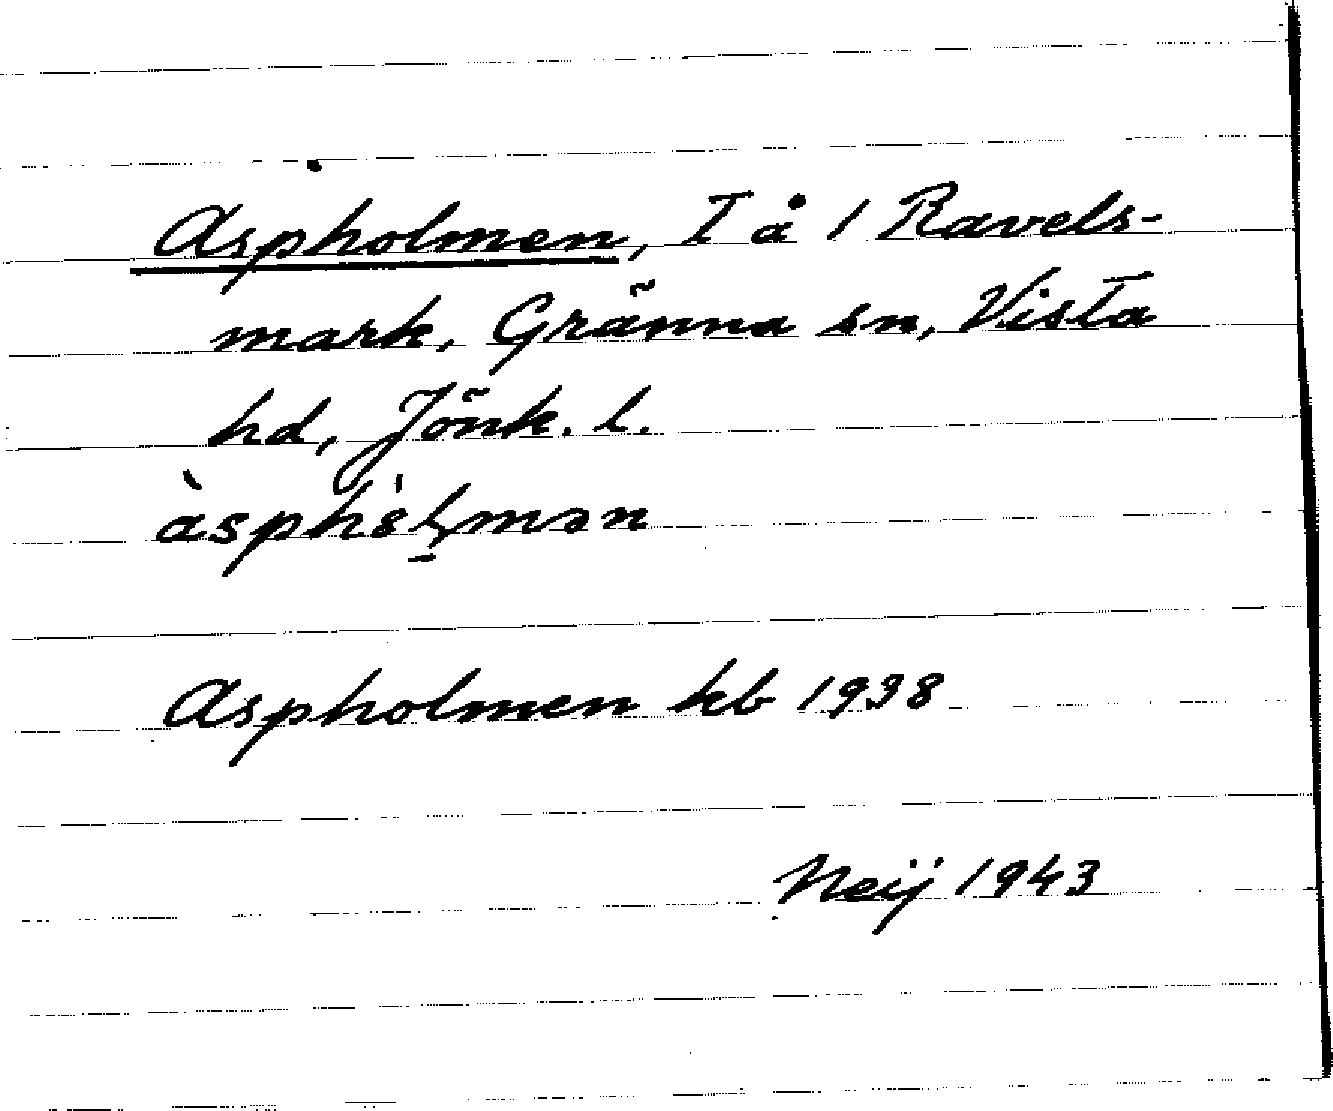 Aspholmen, I å 1 Ravels-
mark, Gränna sn, Vista
hd, Jönk. l.
Aspholmen kb 1938
Neij 1943